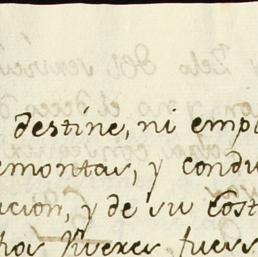 destine, ni empl
emontar, y condu
ucion, y de su cost
hos Viveres fuess